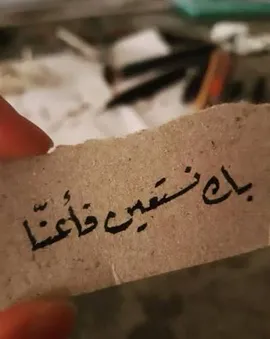 بك نستعين فأعنّا